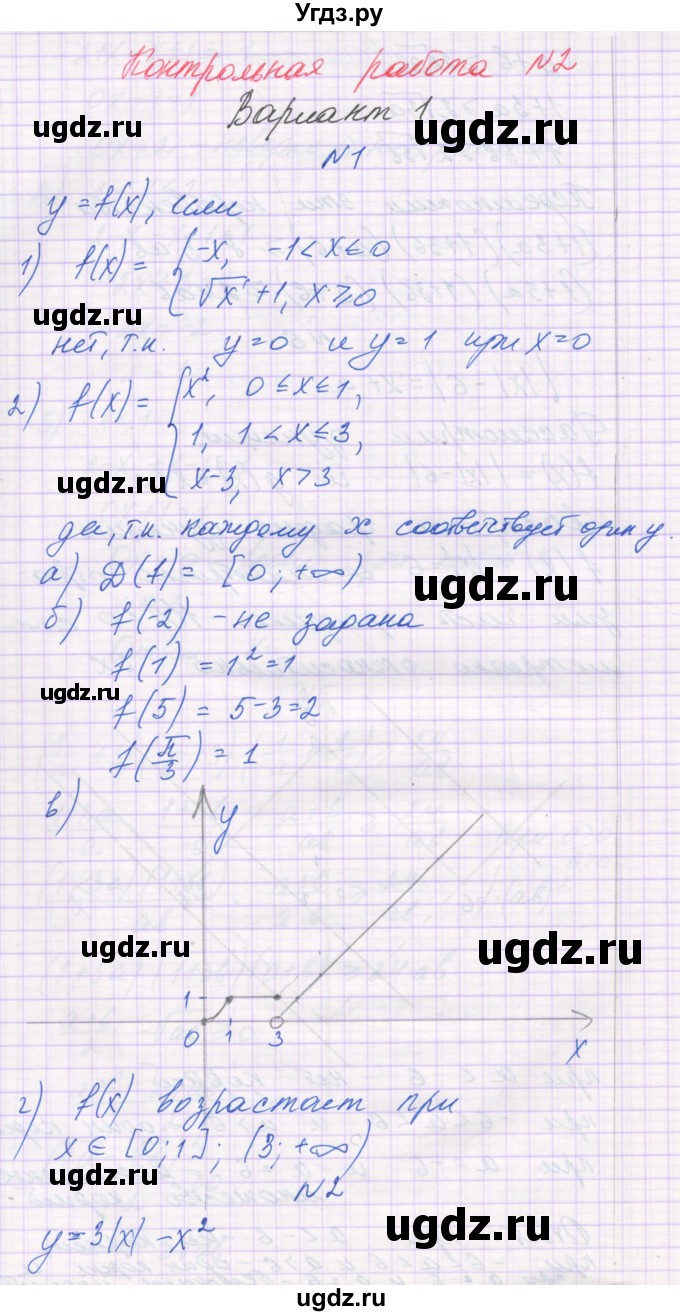 Угдз.ру
Контрольная работа N2
Вариант 1
ugdz.ru ugdz.ru
N1
y = f(x), если
1) f(x) = { -x, -1 < x ≤ 0
√x + 1, x ⩾ 0
ugdz.ru ugdz.ru
нет, т.к. y=0 и y=1 при x=0
2) f(x) = { x², 0 ≤ x ≤ 1,
1, 1 < x ≤ 3,
x-3, x > 3
ugdz.ru ugdz.ru
да, т.к. каждому x соответствует один y.
а) D(f) = [0; +∞)
ugdz.ru ugdz.ru
б) f(-2) - не задана
f(1) = 1² = 1
ugdz.ru ugdz.ru
f(5) = 5-3=2
f(π/3) = 1
в)
y
ugdz.ru ugdz.ru
1
0 1 3
x
г) f(x) возрастает при
x ∈ [0; 1]; (3; +∞)
ugdz.ru
N2
ugdz.ru
y = 3|x| - x²
ugdz.ru